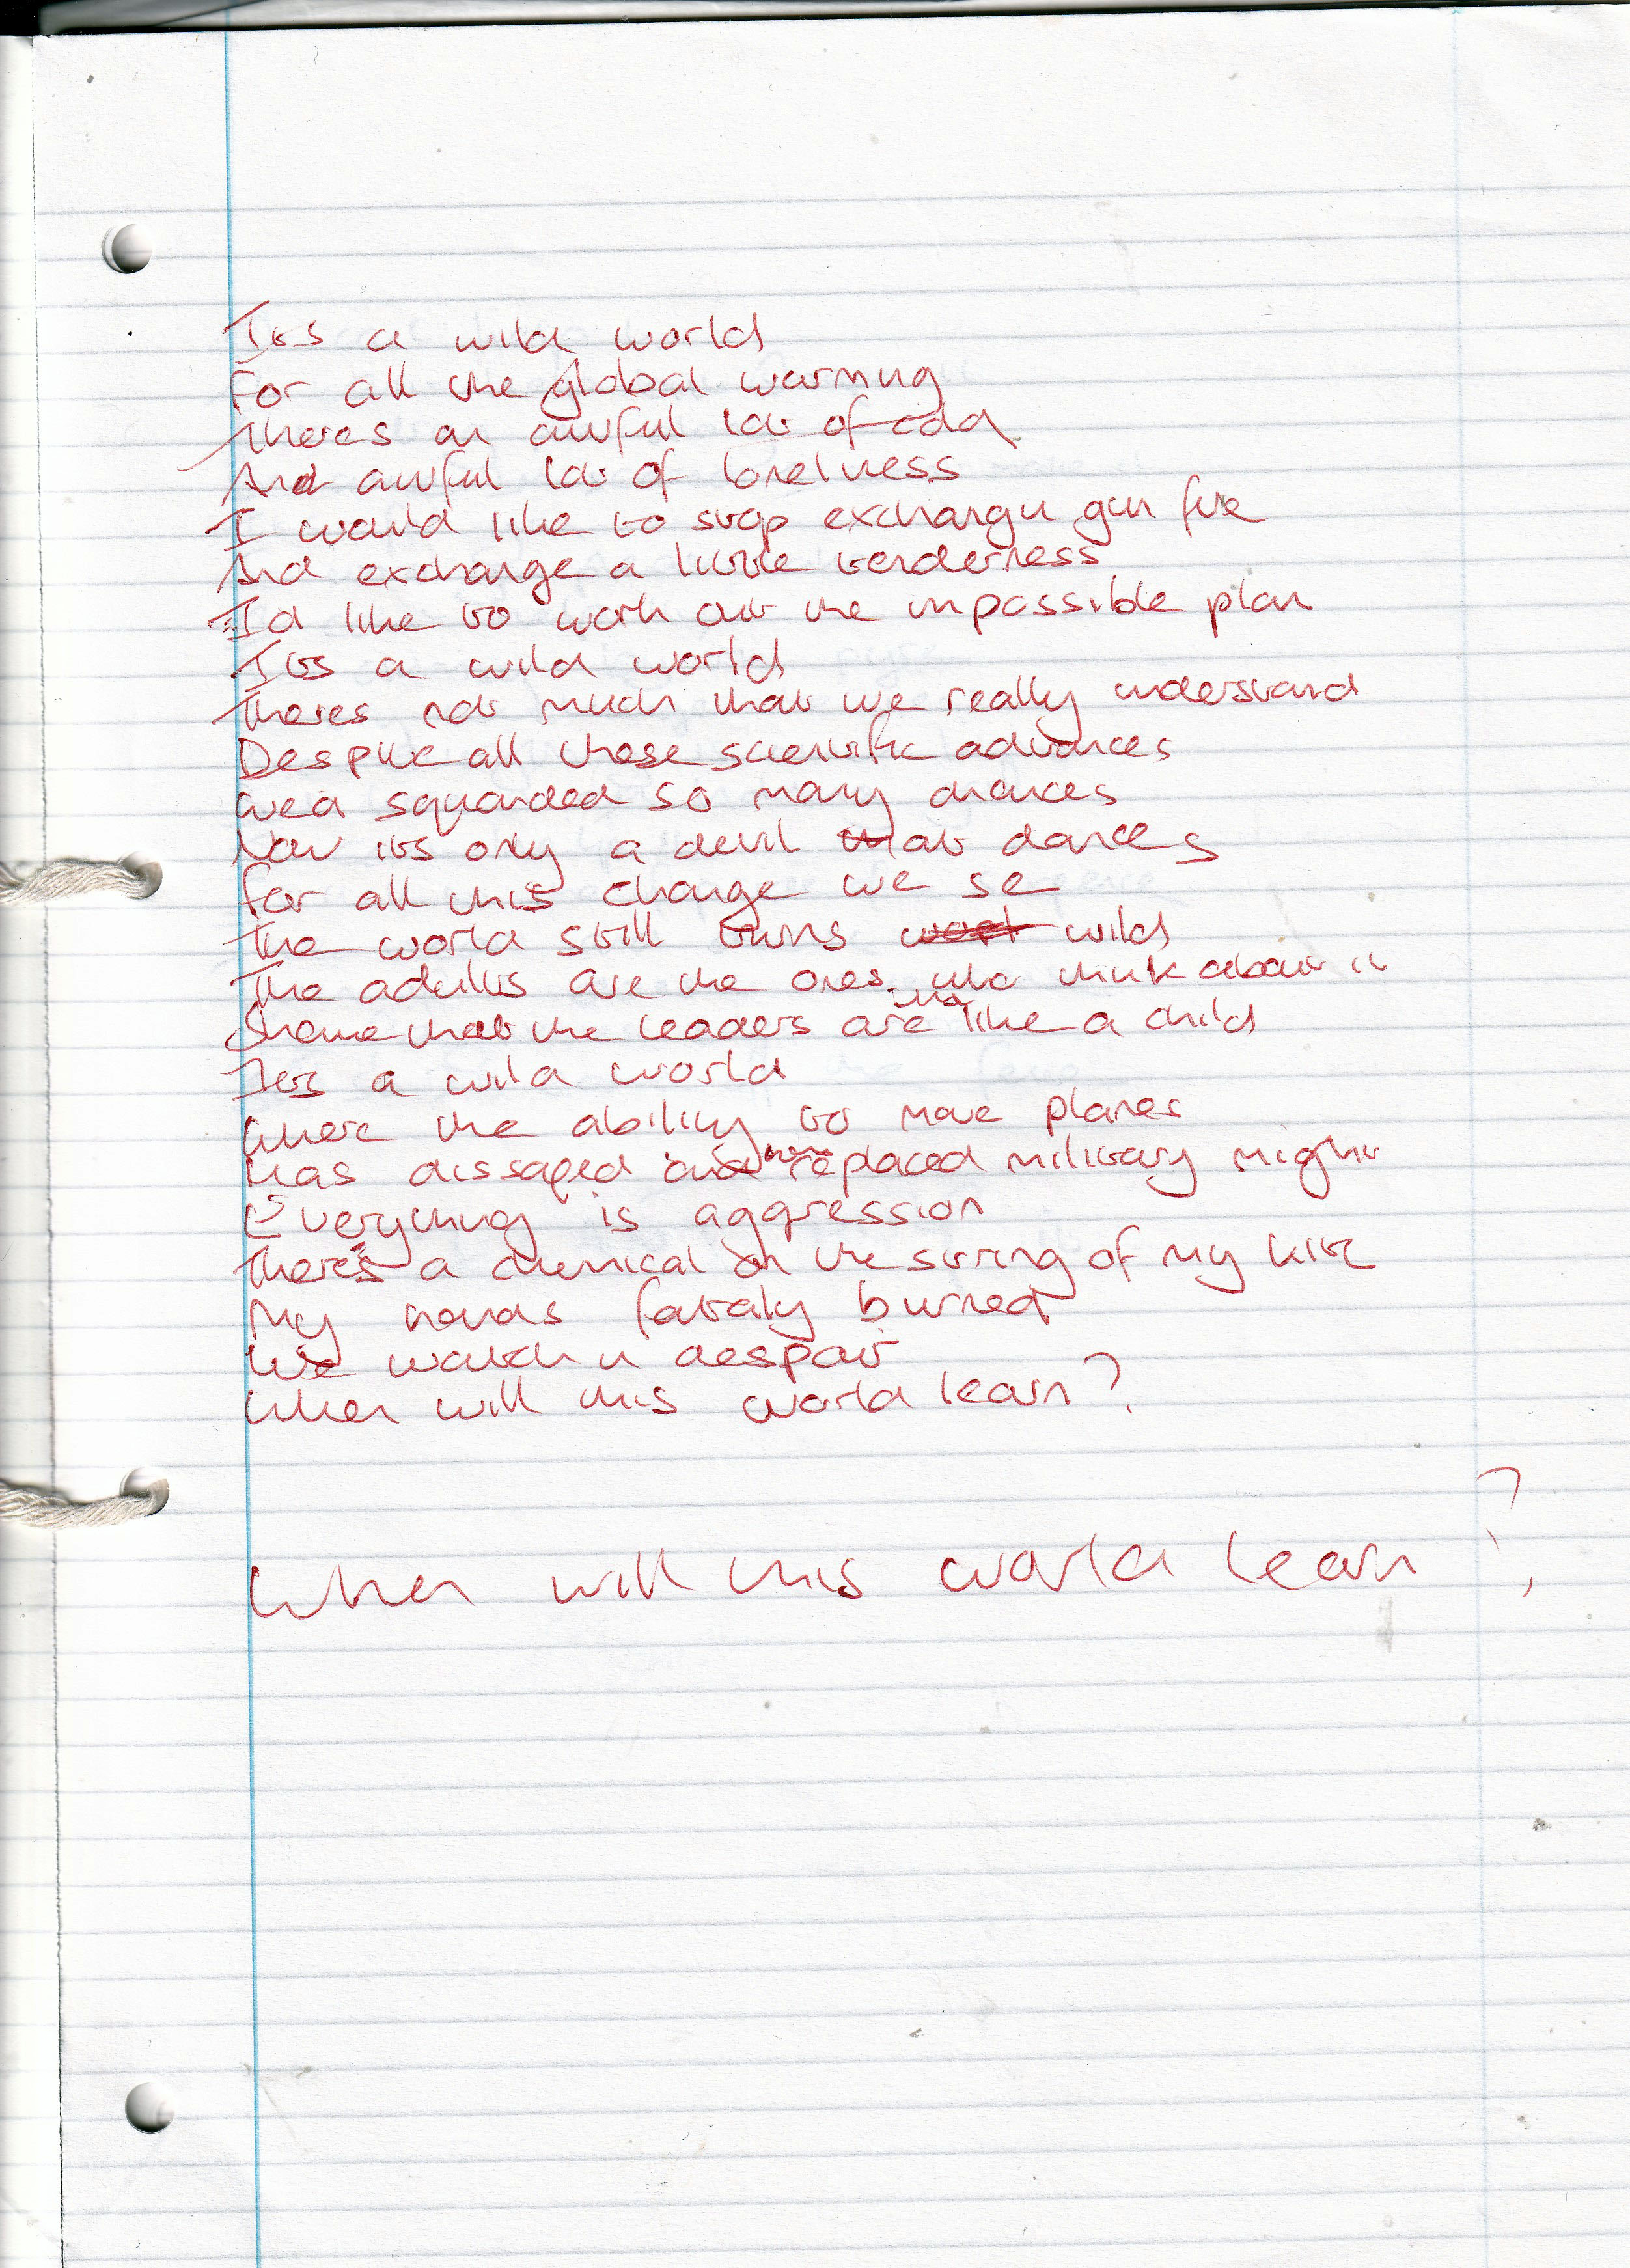 Its a wild world
For all the global warming
Theres an awful lot of cold
And awful lot of lonelness
I would like to stop exchangin gun fire
And exchange a little tenderness
I'd like to work out the impossible plan
Its a wild world
Theres not much that we really understand
Despite all these scientific advances
Wed squanded so many chances
Now its only a devil that dances
For all this change we se
The world still turns wild
The adults are the ones who think about it
Shame that the leaders are like a child
Its a wild world
Where the ability to move planes
Has replaced military might
Everything is aggression
There's a chemical on the string of my kite
My hands fataly burned
We watch in despair
When will this world learn?
When will this world learn?